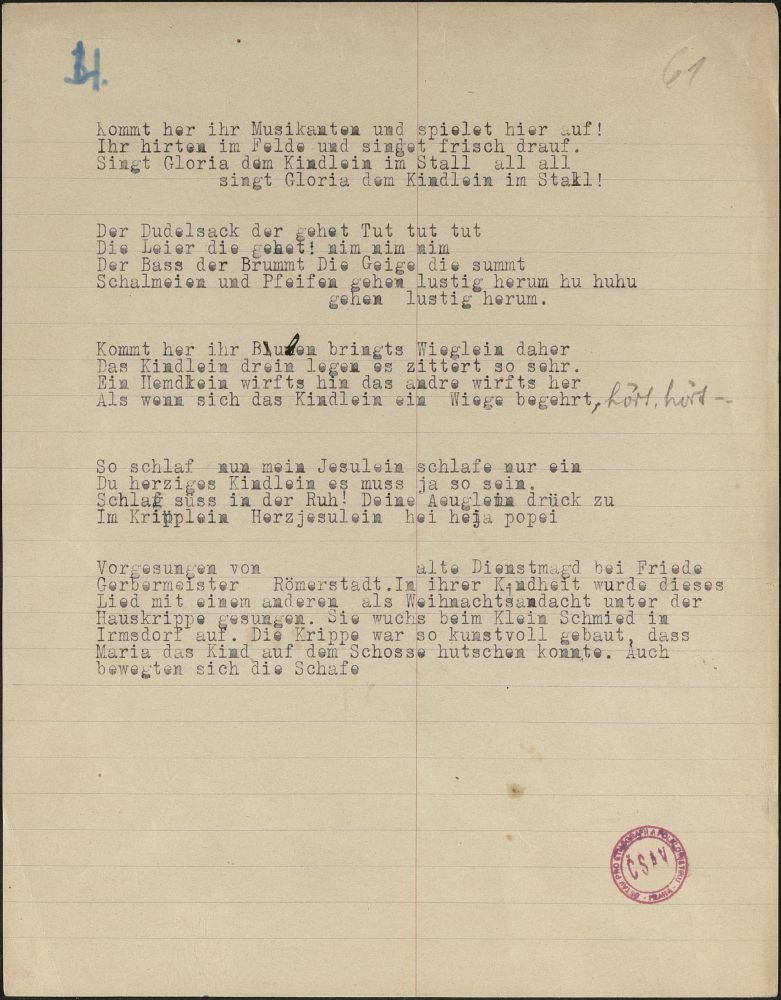 61
Kommt her ihr Musikanten und spielet hier auf!
Ihr hirten im Felde und singet frisch drauf.
Singt Gloria dem Kindlein im Stall all all
singt Gloria dem Kindlein im Stall!
Der Dudelsack der gehet Tut tut tut
Die Leier die gehet! nim nim nim
Der Bass der Brummt Die Geige die summt
Schalmeien und Pfeifen gehen lustig herum hu huhu
gehen lustig herum.
Kommt her ihr Buben bringts Wieglein daher
Das Kindlein drein legen es zittert so sehr.
Ein Hemdlein wirfts hin das andre wirfts her
Als wenn sich das Kindlein ein Wiege begehrt, hört, hört -
So schlaf nun mein Jesulein schlafe nur ein
Du herziges Kindlein es muss ja so sein.
Schlaf süss in der Ruh! Deine Aeuglein drück zu
Im Kripplein Herzjesulein hei heja popei
Vorgesungen von alte Dienstmagd bei Friede
Gerbermeister Römerstadt. In ihrer Kindheit wurde dieses
Lied mit einem anderen als Weihnachtsandacht unter der
Hauskrippe gesungen. Sie wuchs beim Klein Schmied in
Irmsdorf auf. Die Krippe war so kunstvoll gebaut, dass
Maria das Kind auf dem Schosse hutschen konnte. Auch
bewegten sich die Schafe
ČSAV
PRAHA